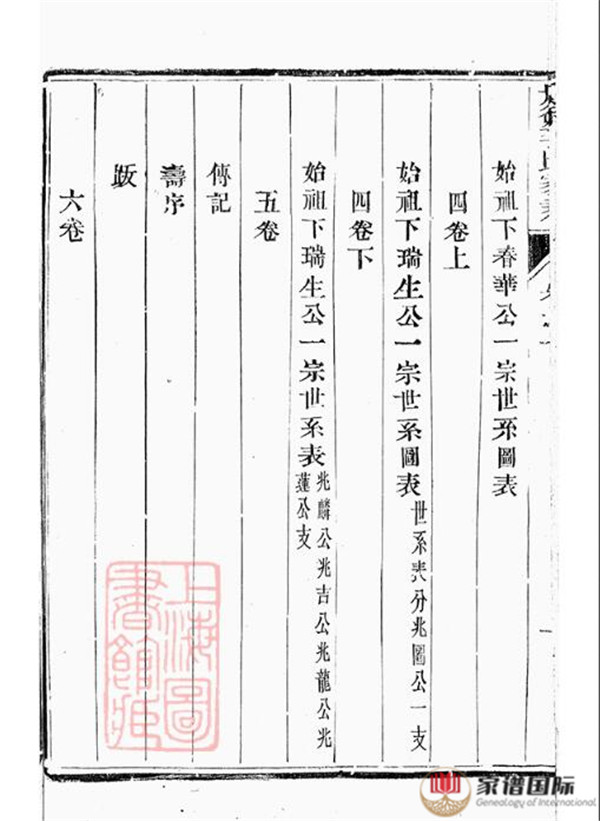 始祖下春華公一宗世系圖表
四卷上
始祖下瑞生公一宗世系圖表 世系表分兆圖公一支
四卷下
始祖下瑞生公一宗世系表 兆麟公兆吉公兆龍公兆
蓮公支
五卷
傳記
壽序
跋
六卷
上海圖
書館藏
家谱国际
Genealogy of International